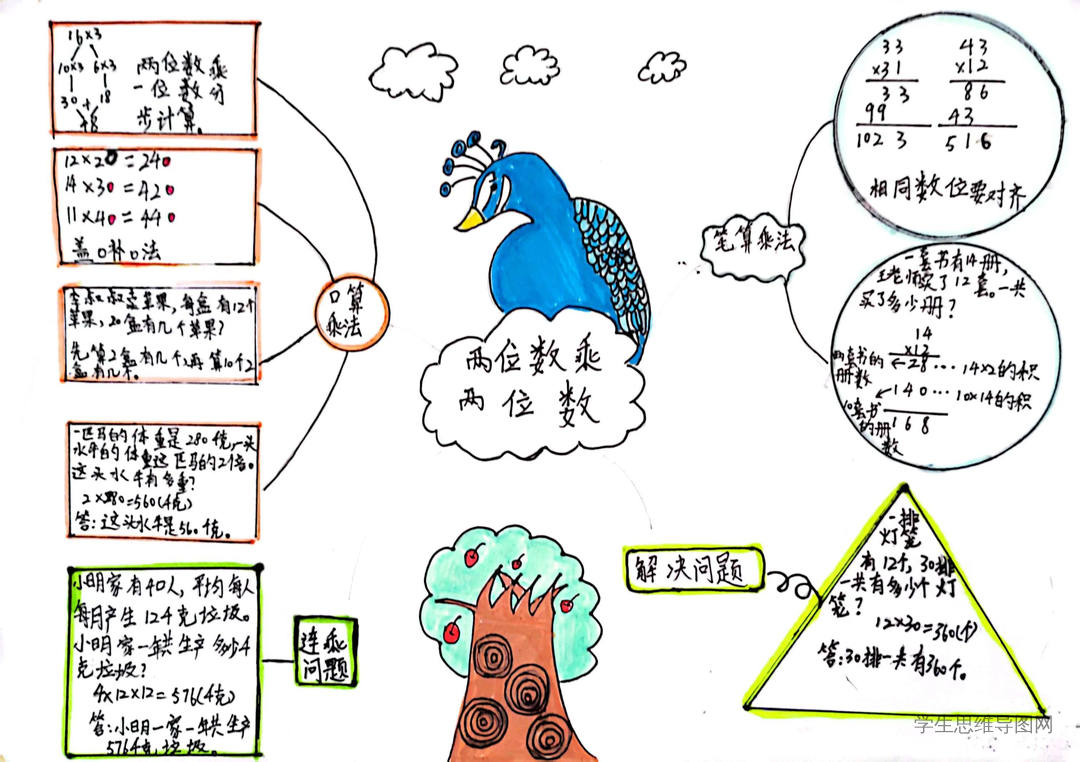 16×3
10×3 6×3
30 + 18
48
两位数乘
一位数分
步计算。
12×20=240
14×30=420
11×40=440
盖0补0法
李叔叔卖苹果,每盒有12个
苹果,20盒有几个苹果?
先算2盒有几个,再算10个2
盒有几个。
一匹马的体重是280千克,一头
水牛的体重这匹马的2倍。
这头水牛有多重?
2×280=560(千克)
答:这头水牛是560千克。
口算
乘法
小明家有40人,平均每人
每月产生12千克垃圾。
小明家一年共生产多少千
克垃圾?
4×12×12=576(千克)
答:小明一家一年共生产
576千克垃圾。
连乘
问题
两位数乘
两位数
笔算乘法
33
×31
33
99
1023
43
×12
86
43
516
相同数位要对齐
一套书有14册,
王老师买了12套。一共
买了多少册?
14
×12
两套书的册数
←28…14×2的积
140…10×14的积
10套书的册数
168
解决问题
一排
灯笼
有12个,30排
一共有多少个灯
笼?
12×30=360(个)
答:30排一共有360个。
学生思维导图网